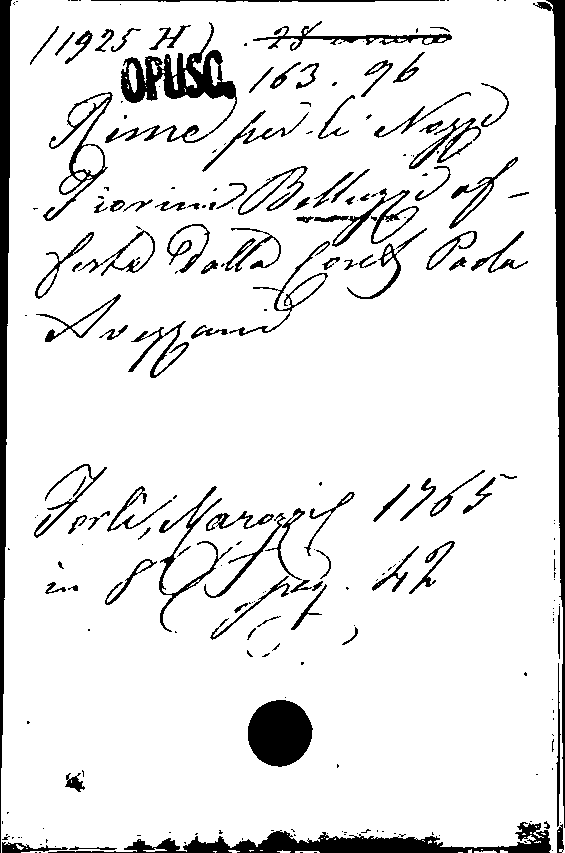 (1925 H) . 28
OPUSC. 163. 96
Rime per li Nozze
Fiorini Belluzzi of-
ferte Dalla Paola
Avezzani
Forlì, Marozzi 1765
in 8° pag. 42